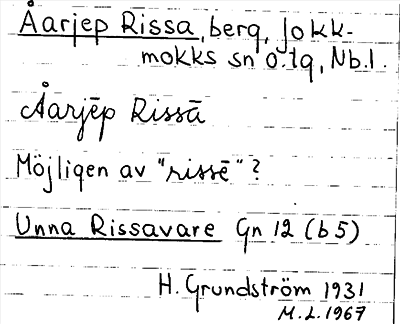 Åarjep Rissa, berg, Jokk-
mokks sn o. tg, Nb.l.
Åarjēp Rissā
Möjligen av "rissē"?
Unna Rissavare Gn 12 (b5)
H. Grundström 1931
M.L. 1967